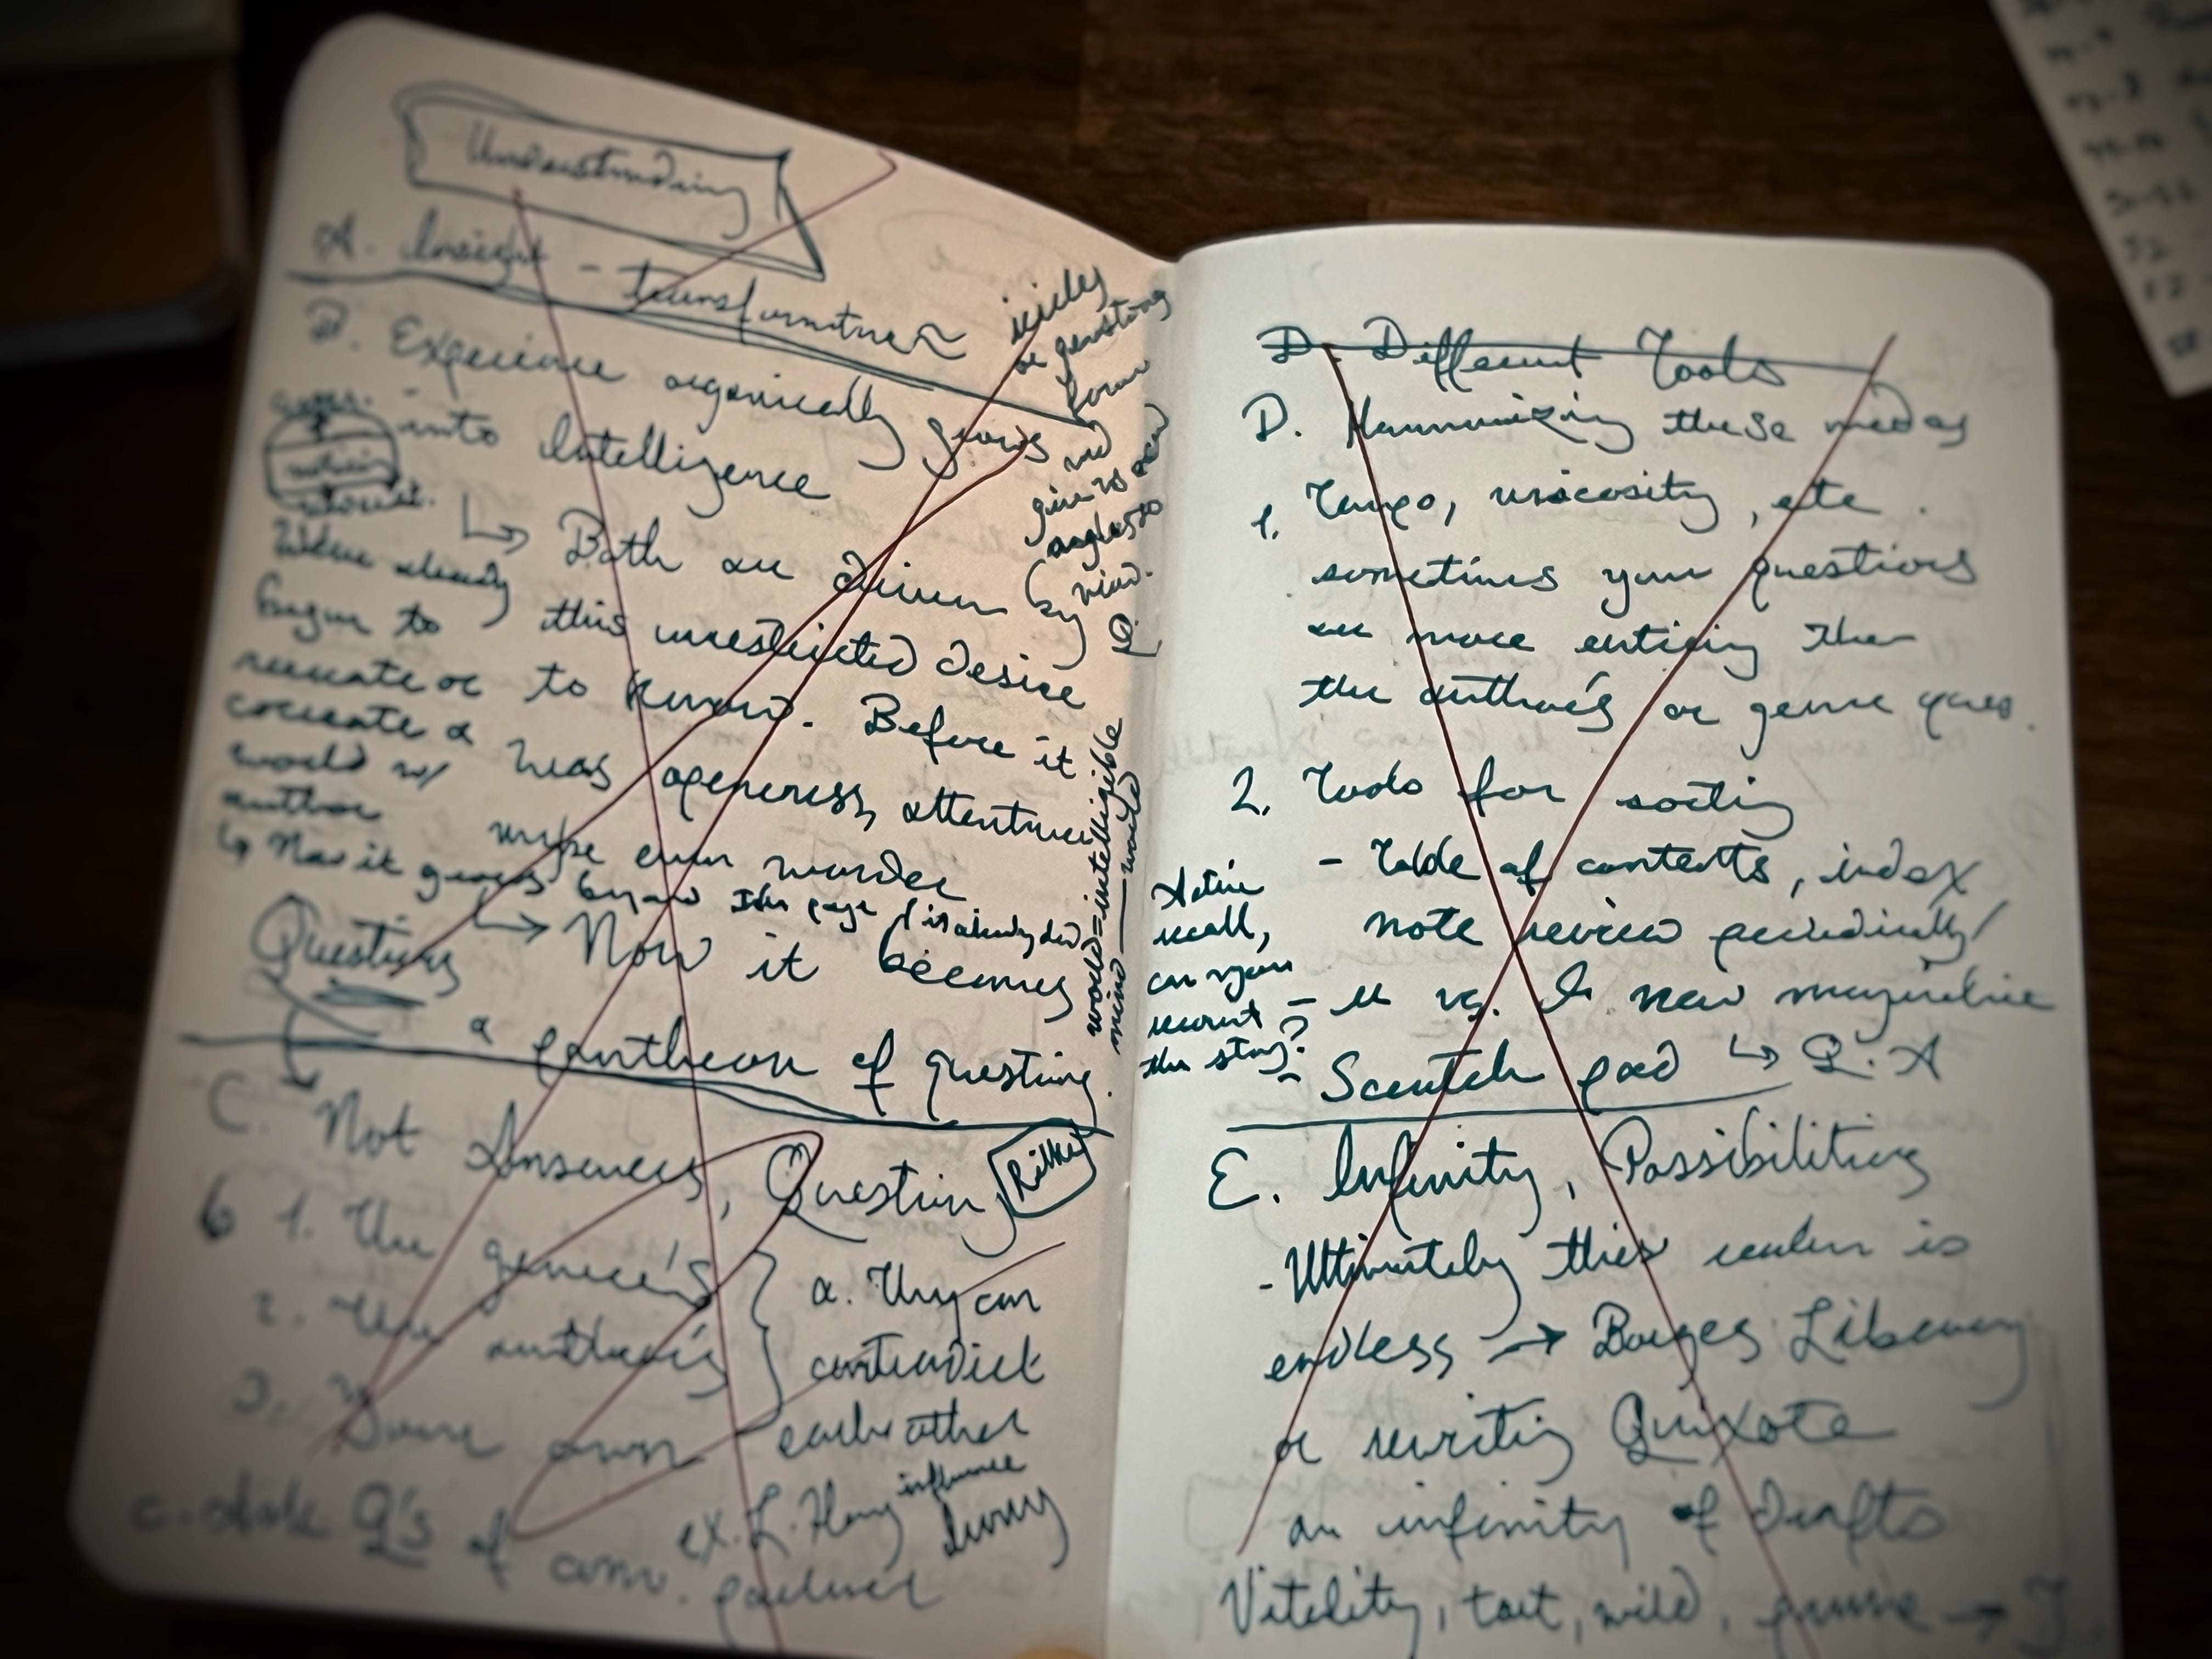 Understanding
A. Insight - transformative
B. Experience organically grows
into Intelligence
↳ Both are driven by
this unrestricted desire
to know. Before it
was openness, attentive
maybe even wonder
↳ Now it becomes
a pantheon of questions.
We've already
begun to
recreate or
cocreate a
world w/
author
↳ Now it grows beyond the page
Questions
or
form
and
give us new
angles to
view.
Q
world = intelligible
mind — world
C. Not Answers, Questions
Rilke
b 1. The genre's
2. The author's
3. Your own
a. They can
contradict
each other
ex. L. Hong influence
c. Ask Q's of conv. partner
D. Different Tools
D. Harmonizing these modes
1. Tempo, viscosity, etc.
sometimes your questions
are more enticing then
the author's or genre ques.
2. Tools for sorting
- Table of contents, index
note review periodically/
Active
recall,
can you
recount
the story?
- vs. In new
- Scratch pad ↳ Q. A
E. Infinity, Possibilities
- Ultimately this realm is
endless → Borges Library
or rewriting Quixote
an infinity of drafts
Vitality, tart, wild, →